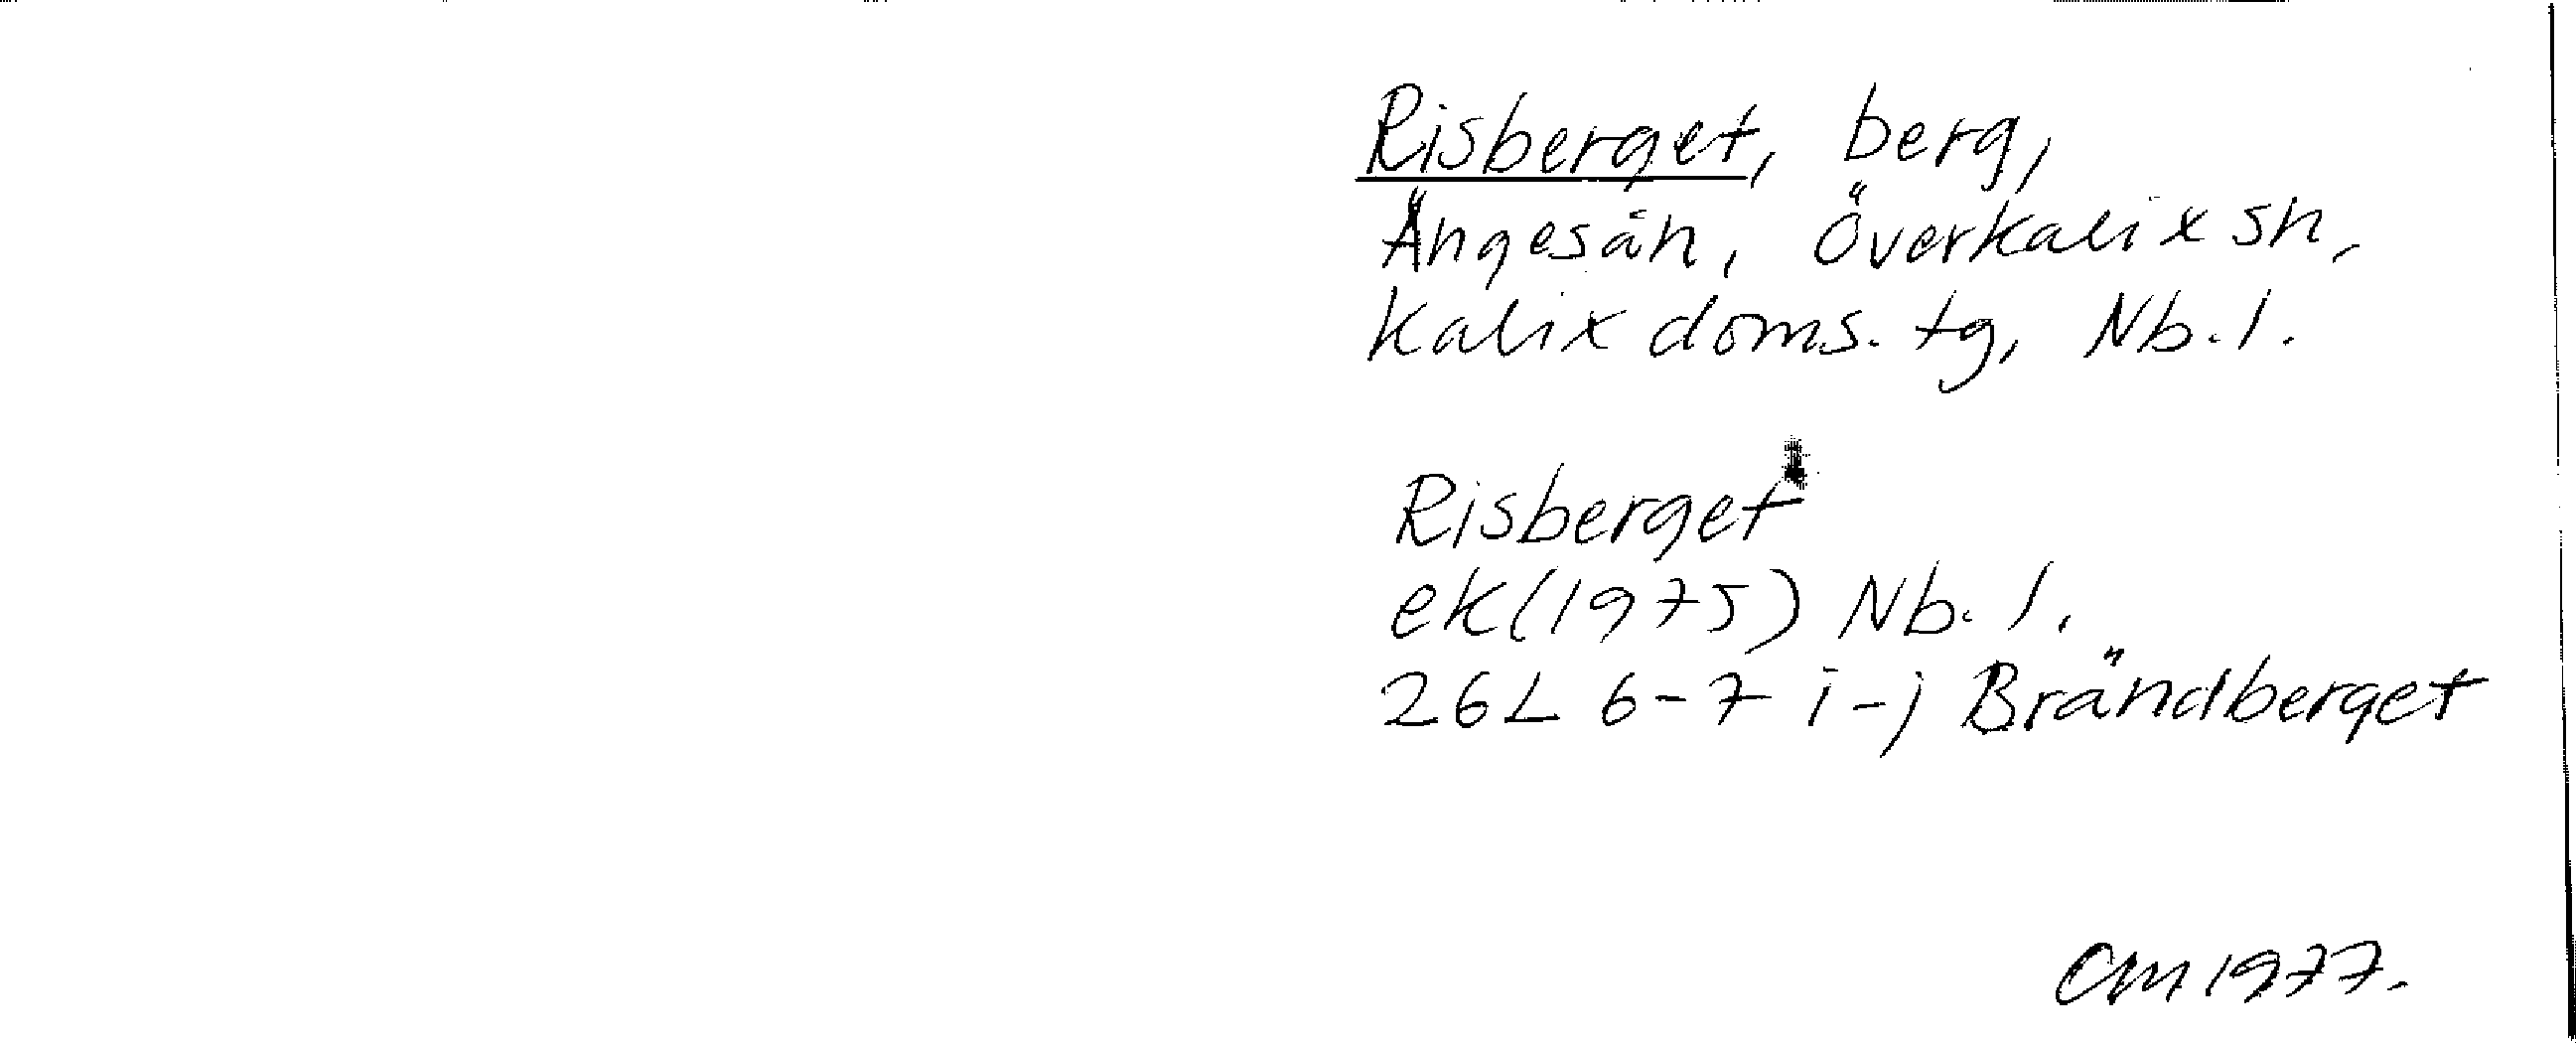 Risberget, berg,
Ängesån, Överkalix sn,
Kalix doms. tg, Nb. l.
Risberget
ek (1975) Nb. l.
26L 6-7 i-j Brändberget
CM 1977.